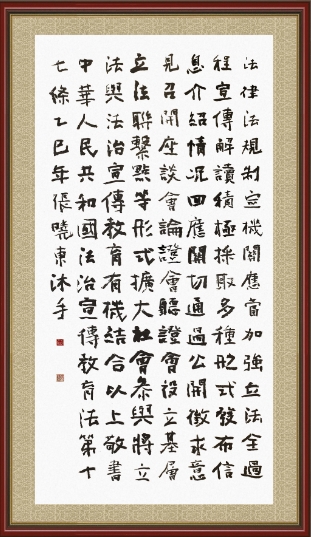 法律法規制定機關應當加強立法全過
程宣傳解讀積極採取多種形式發布信
息介紹情況回應關切通過公開徵求意
見召開座談會論證會聽證會設立基層
立法聯繫點等形式擴大社會參與將立
法與法治宣傳教育有機結合以上敬書
中華人民共和國法治宣傳教育法第十
七條乙巳年張曉東沐手